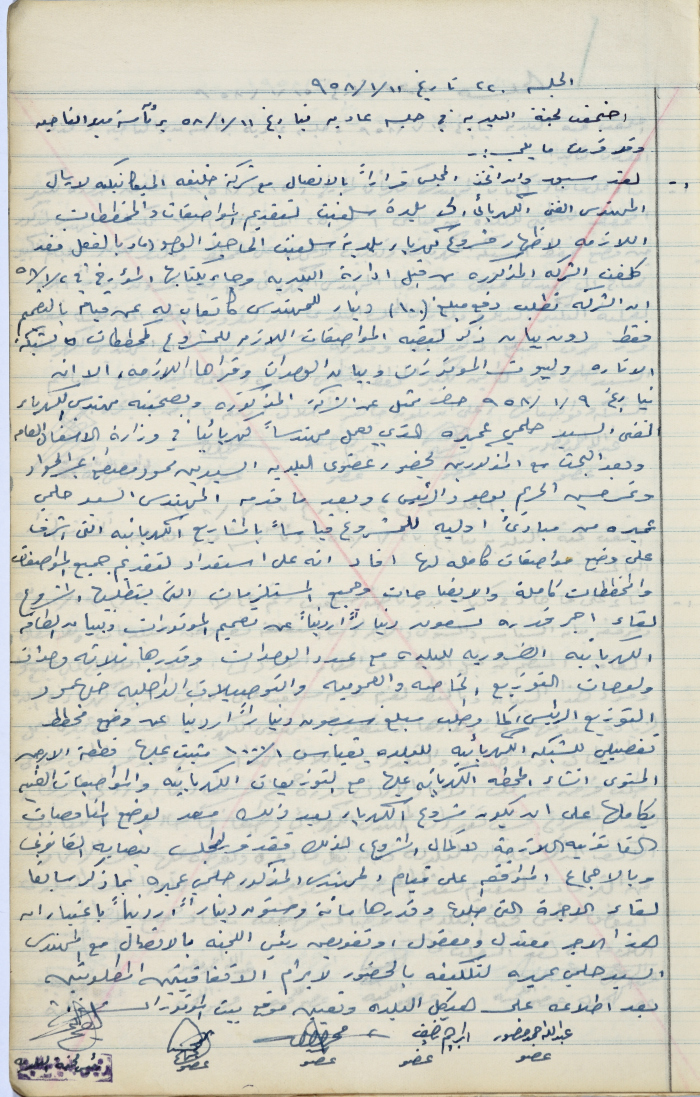 الجلسه ٢٢ تاريخ ٩٥٨/١/١١
اجتمعت لجنة البلديه في جلسه عاديه بتاريخ ٥٨/١/١١ برئآسة
وقد قررت ما يلي :-
١- لقد سبق وان اتخذ المجلس قراراً بالاتصال مع شركة خليفه الميكانيكيه لارسال
المهندس الفني الكهربائي الى بلدية سلفيت لتقديم المواصفات والمخططات
اللازمه لاظهار مشروع كهرباء بلدية سلفيت الى حيز الوجود وبالفعل فقد
كلفت الشركه المذكوره من قبل ادارة البلديه وجاء بكتابها المؤرخ في
ان الشركه تطلب دفع مبلغ (١٠٠) دينار للمهندس كأتعاب له عن قيامه بالتصميم
فقط دون بيان ذكر لبقية المواصفات اللازمه للمشروع كمخططات الشبكة
الاناره ولبيوت الموتورات وبيان الوحدات وقواها اللازمه، الا انه
بتاريخ ٩٥٨/١/٩ حضر ممثل عن الشركه المذكوره وبصحبته مهندس الكهرباء
الفني السيد حلمي عميره الذي يعمل مهندساً كهربائياً في وزارة الاشغال العامه
وبعد البحث مع المذكورين بحضور عضوي البلديه السيدين محمود مصطفى عبد الجواد
وتحسين الحزيم بوجود الرئيس، وبعد ما قدمه المهندس السيد حلمي
عميره من مبادئ اوليه للمشروع قياساً بالمشاريع الكهربائيه التي اشرف
على وضع مواصفات كامله لها افاد انه على استعداد لتقديم جميع المواصفات
والمخططات كاملة والايضاحات وجميع المستلزمات التي يتطلبها المشروع
لقاء اجر قدره تسعون ديناراً اردنياً عن تصميم الموتورات وبيان الطاقه
الكهربائيه الضروريه للبلديه مع عدد الوحدات وقدرها ثلاثه وحدات
ولوحات التوزيع الخاصه والعموميه والتوصيلات الداخليه حتى عمود
التوزيع الرئيسي كما وطلب مبلغ سبعون ديناراً اردنيا عن وضع مخطط
تفصيلي للشبكه الكهربائيه للبلديه بمقياس ١٠٠٠/١ مثبت عليها قطعة الارض
المنوي انشاء المحطه الكهربائيه عليها مع التوزيعات الكهربائيه والمواصفات الفنيه
بكاملها على ان يكون مشروع الكهرباء بعد ذلك معد لوضع المناقصات
القانونيه اللازمة لاكمال المشروع، لذلك فقد قرر المجلس بنصابه القانوني
وبالاجماع الموافقه على قيام المهندس المذكور حلمي عميره بما ذكر سابقا
لقاء الاجرة التي طلبها وقدرها مائة وستون ديناراً اردنياً باعتبار ان
هذا الاجر معتدل ومعقول وتفويض رئيس اللجنه بالاتصال مع المهندس
السيد حلمي عميره لتكليفه بالحضور لابرام الاتفاقيتين المطلوبتين
بعد اطلاعه على هيكل البلديه وتعيين موقع بيت الموتورات
عبدالله احمد منصور
عضو عضو عضو عضو
رئيس لجنة بلدية